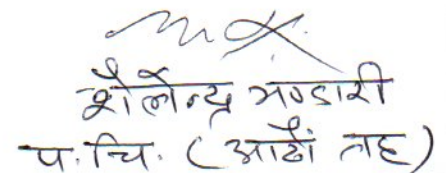 शैलेन्द्र भण्डारी
प.चि. (आठौं तह)